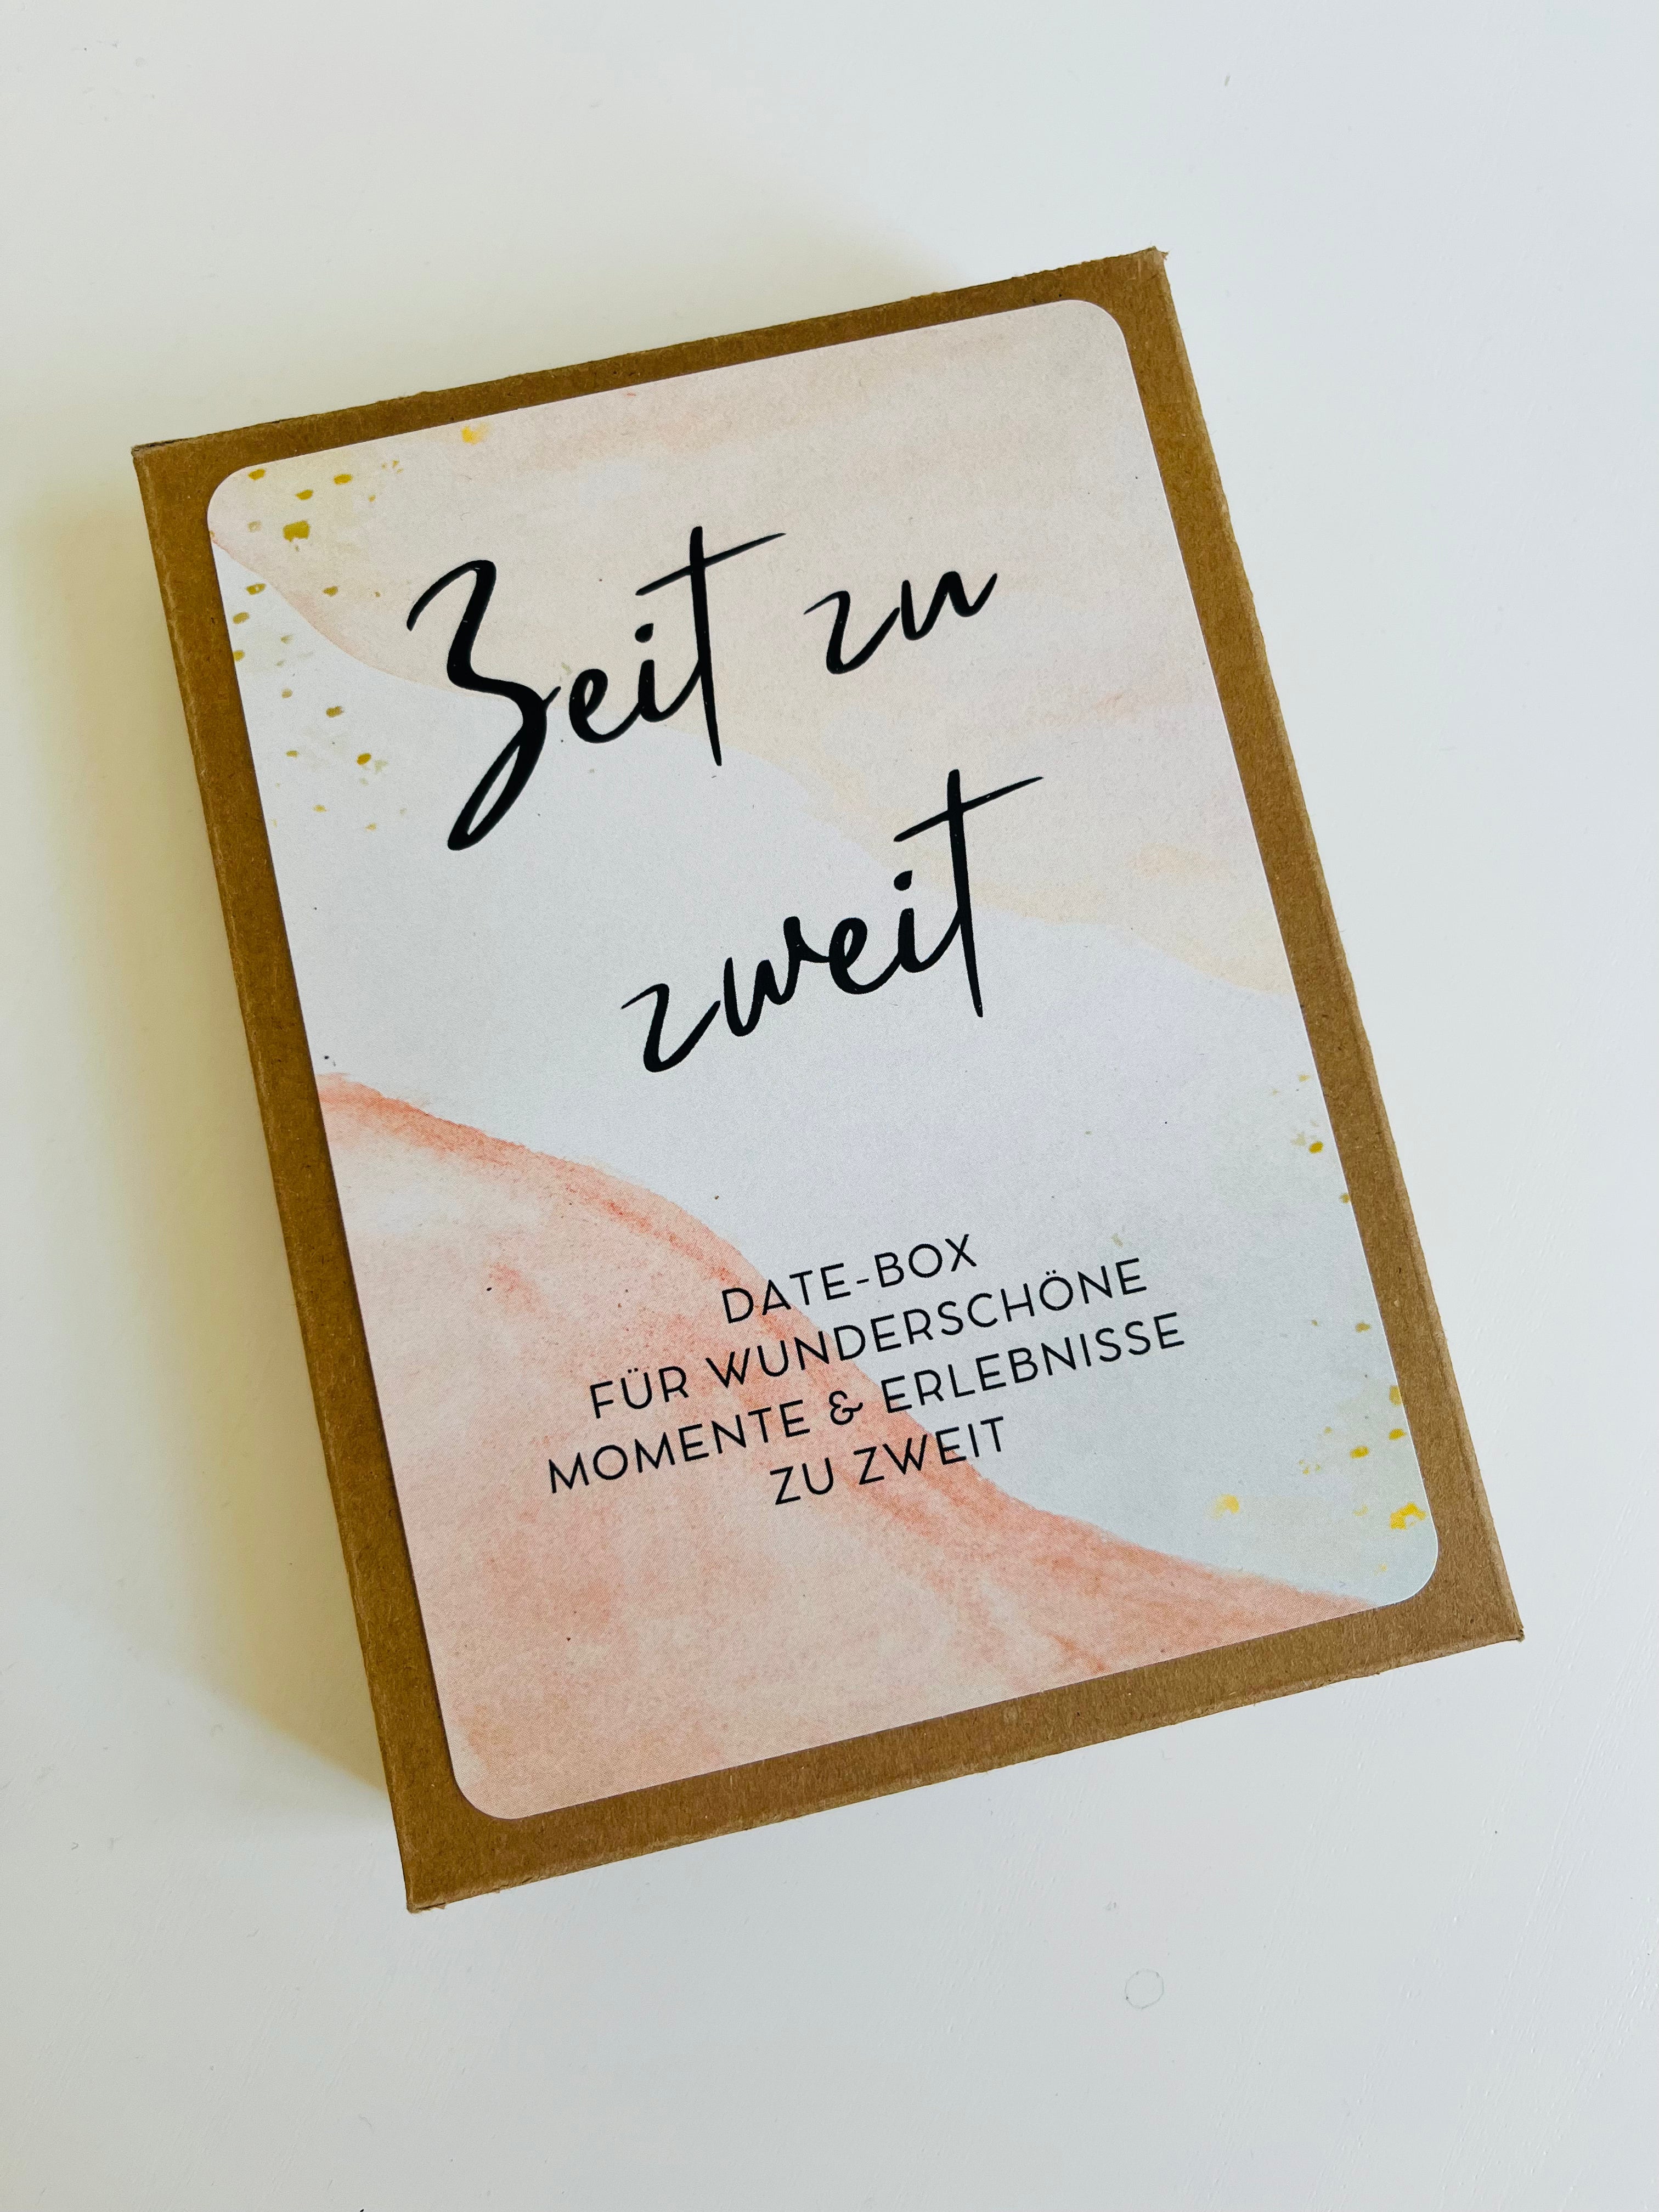 Zeit zu
zweit
DATE-BOX
FÜR WUNDERSCHÖNE
MOMENTE & ERLEBNISSE
ZU ZWEIT